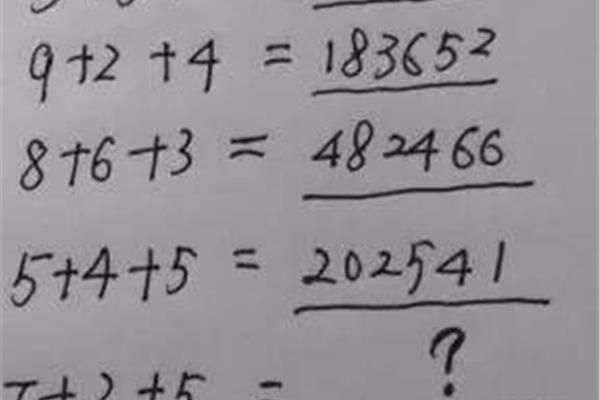 9+2+4 = 183652
8+6+3 = 482466
5+4+5 = 202541
?
+5 =